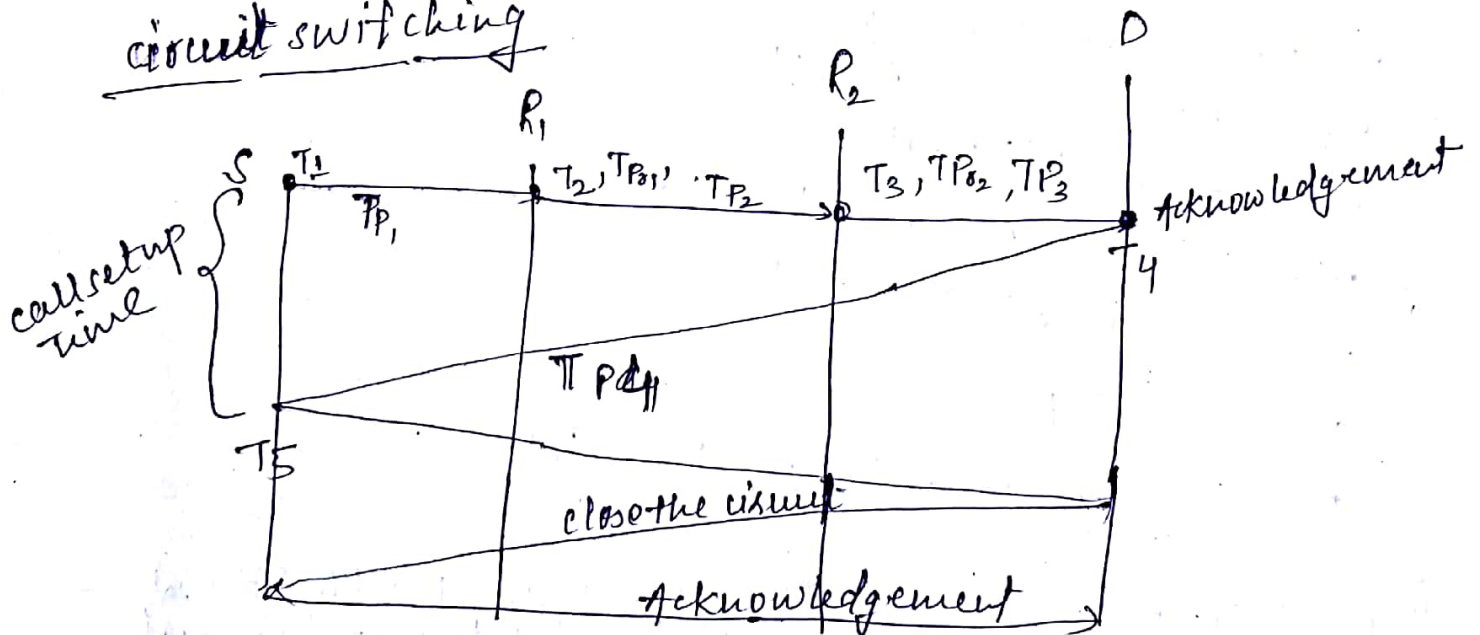 circuit switching
D
R₂
R₁
S T1
Tp₁
T₂, Tpr₁, Tp₂
T₃, Tpr₂, Tp₃
Acknowledgement
T4
callsetup
Time
T5
close the circuit
Acknowledgement